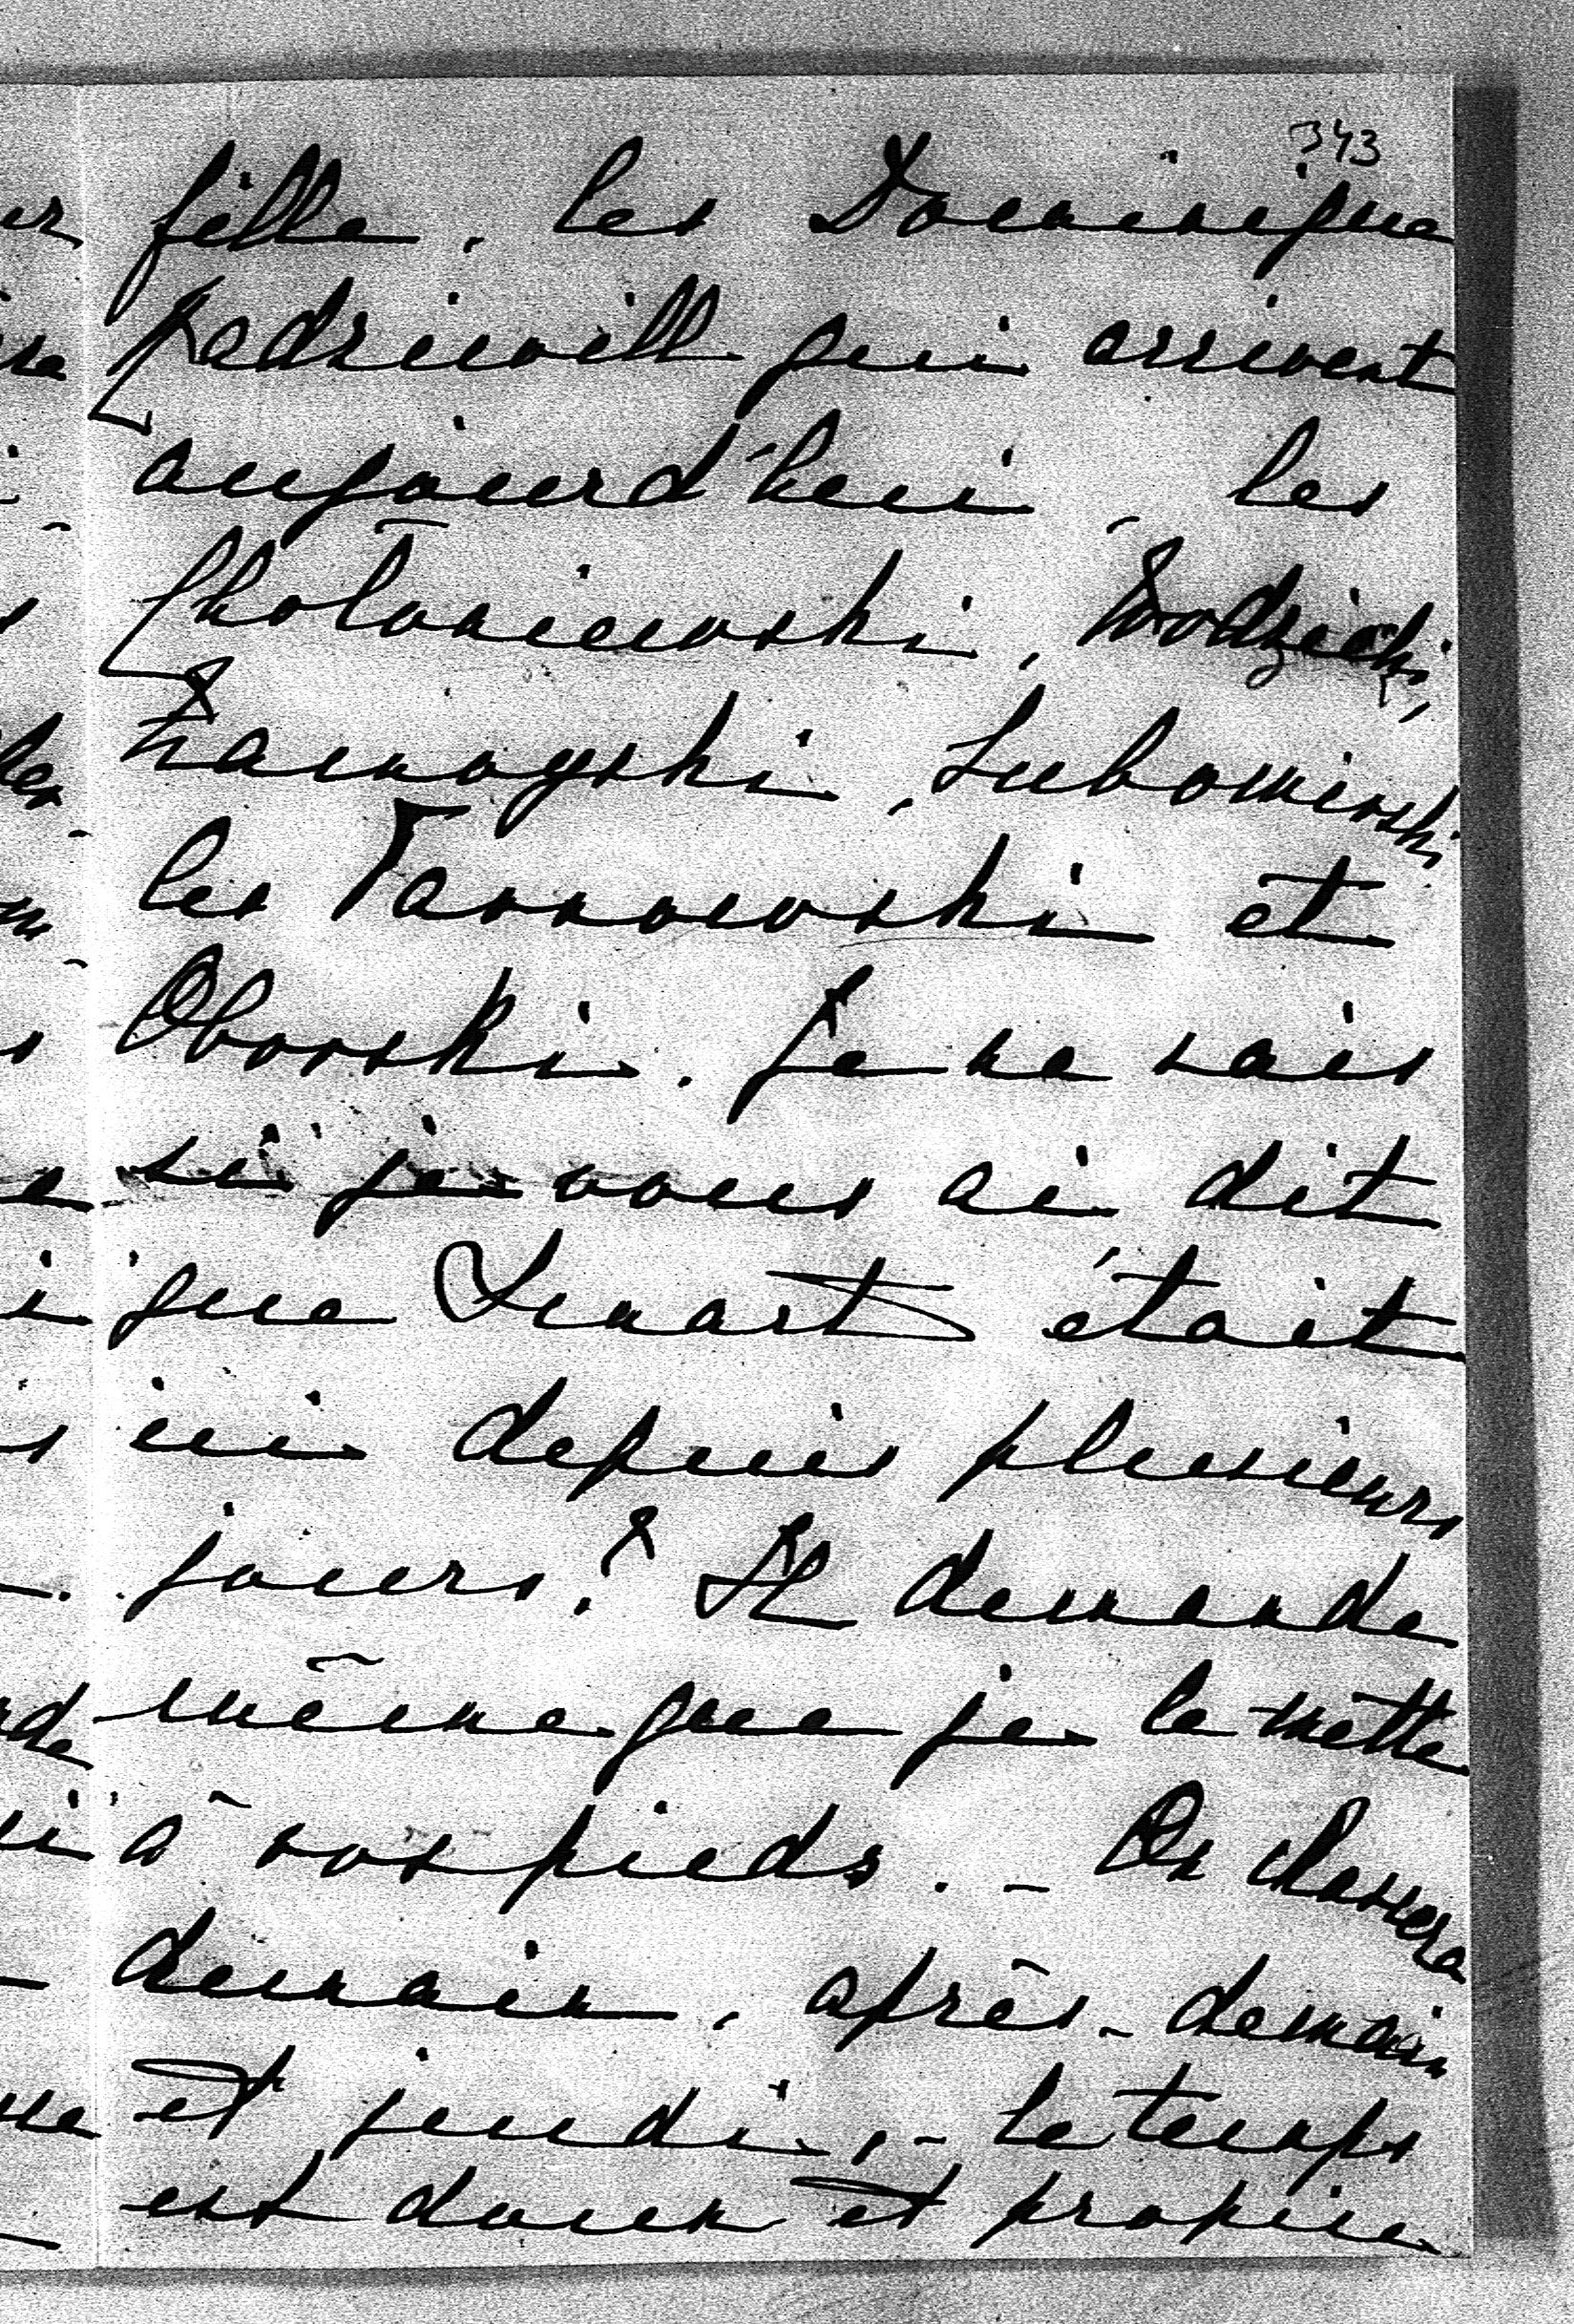 343
fille, les Dominique
Radziwill qui arrivent
aujourd'hui, les
Choloniewski, Wodzicki,
Zamoyski, Lubomirski
les Tarnowski et
Oborski. Je ne sais
si je vous ai dit
que Lenart était
ici depuis plusieurs
jours? Il demande
même que je le mette
à vos pieds. - On chassera
demain, après-demain
et jeudi, - le temps
est doux et propice